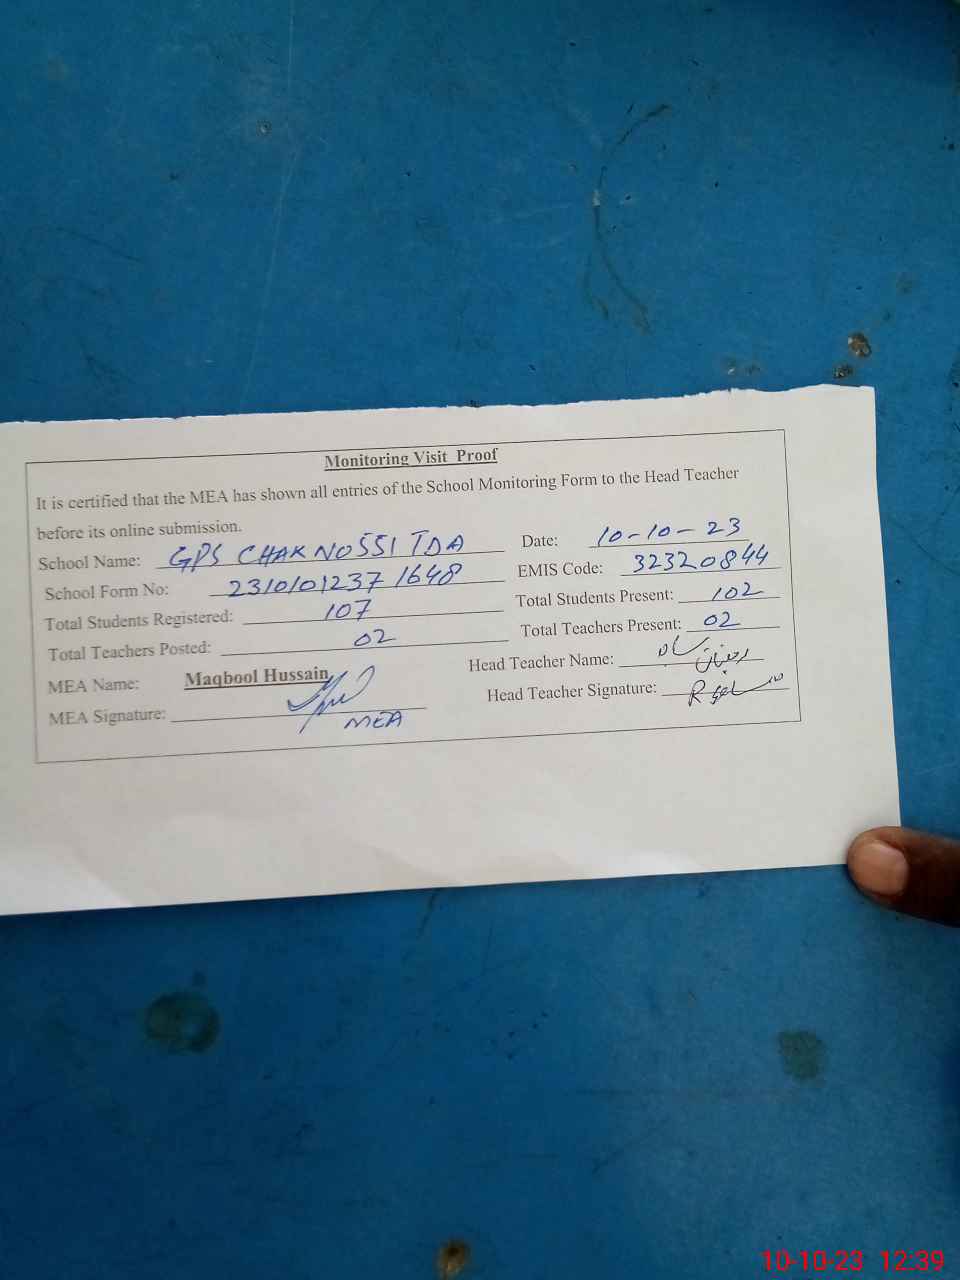 Monitoring Visit Proof
It is certified that the MEA has shown all entries of the School Monitoring Form to the Head Teacher
before its online submission.
School Name: GPS CHAK NO 551 TDA Date: 10-10-23
School Form No: 23101012371648 EMIS Code: 32320844
Total Students Registered: 107 Total Students Present: 102
Total Teachers Posted: 02 Total Teachers Present: 02
MEA Name: Maqbool Hussain Head Teacher Name: رمضان
MEA Signature: MEA Head Teacher Signature:
10-10-23 12:39